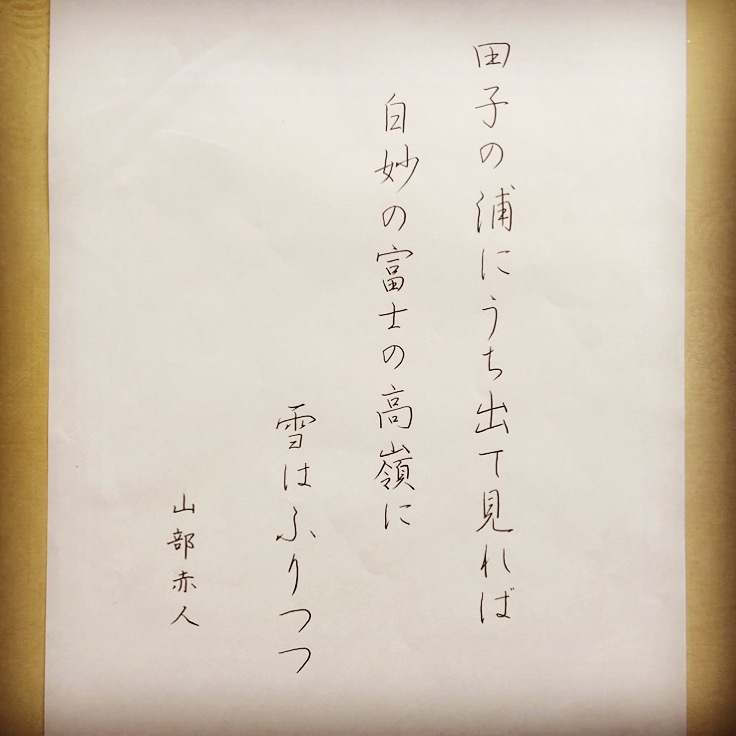 田子の浦にうち出て見れば
白妙の富士の高嶺に
雪はふりつつ
山部赤人